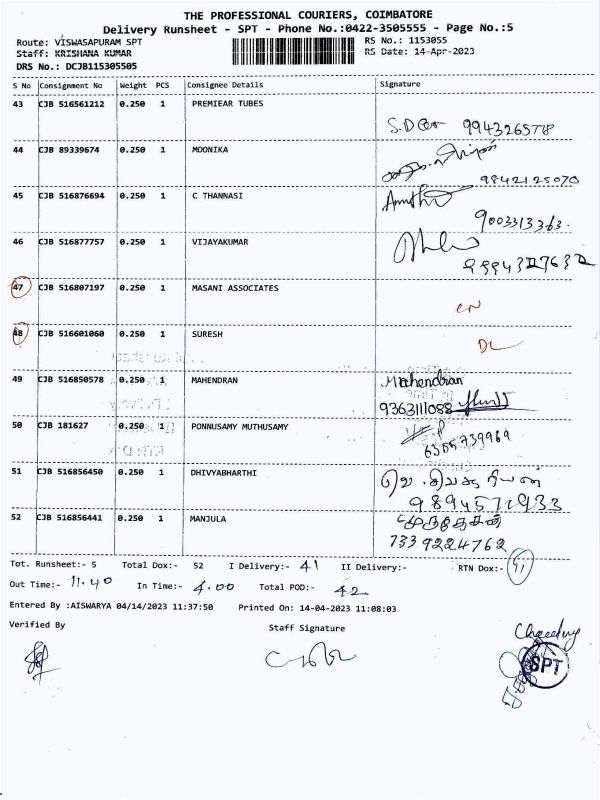 THE PROFESSIONAL COURIERS, COIMBATORE
Delivery Runsheet - SPT - Phone No.:0422-3505555 - Page No.:5
Route: VISWASAPURAM SPT RS No.: 1153055
Staff: KRISHANA KUMAR RS Date: 14-Apr-2023
DRS No.: DCJB115305505
S No Consignment No Weight PCS Consignee Details Signature
43 CJB 516561212 0.250 1 PREMIEAR TUBES
9943265778
44 CJB 89339674 0.250 1 MOONIKA
9842125070
45 CJB 516876694 0.250 1 C THANNASI
9003313363.
46 CJB 516877757 0.250 1 VIJAYAKUMAR
47 CJB 516807197 0.250 1 MASANI ASSOCIATES
CN
48 CJB 516601060 0.250 1 SURESH
DL
49 CJB 516850578 0.250 1 MAHENDRAN Mahendran
9363111088
50 CJB 181627 0.250 1 PONNUSAMY MUTHUSAMY
6385739969
51 CJB 516856450 0.250 1 DHIVYABHARTHI
9894571933
52 CJB 516856441 0.250 1 MANJULA
7339224762
Tot. Runsheet:- 5 Total Dox:- 52 I Delivery:- 41 II Delivery:- RTN Dox:-
Out Time:- 11.40 In Time:- 4.00 Total POD:- 42
Entered By :AISWARYA 04/14/2023 11:37:50 Printed On: 14-04-2023 11:08:03
Verified By Staff Signature
SPT